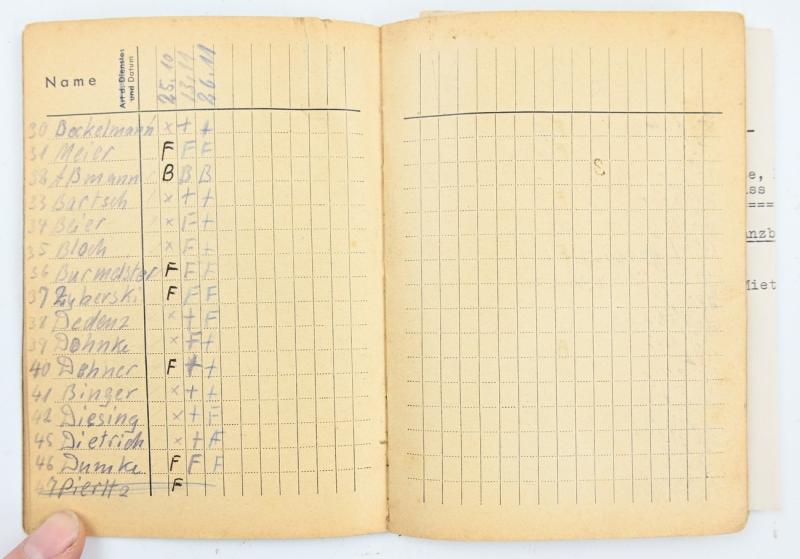 Name Art d. Dienstes und Datum 25.10 13.11 26.11
30 Beckelmann x + +
31 Meier F F F
32 Aßmann B B B
33 Bartsch x + +
34 Beier x F +
35 Bloch x F +
36 Burmeister F F F
37 Zuberski F F F
38 Dedenz x + F
39 Dohnke x F +
40 Dohner F + +
41 Binger x + +
42 Diesing x + F
45 Dietrich x + F
46 Dumke F F F
47 Pieritz F
e,
ss
====
anzb
Miet